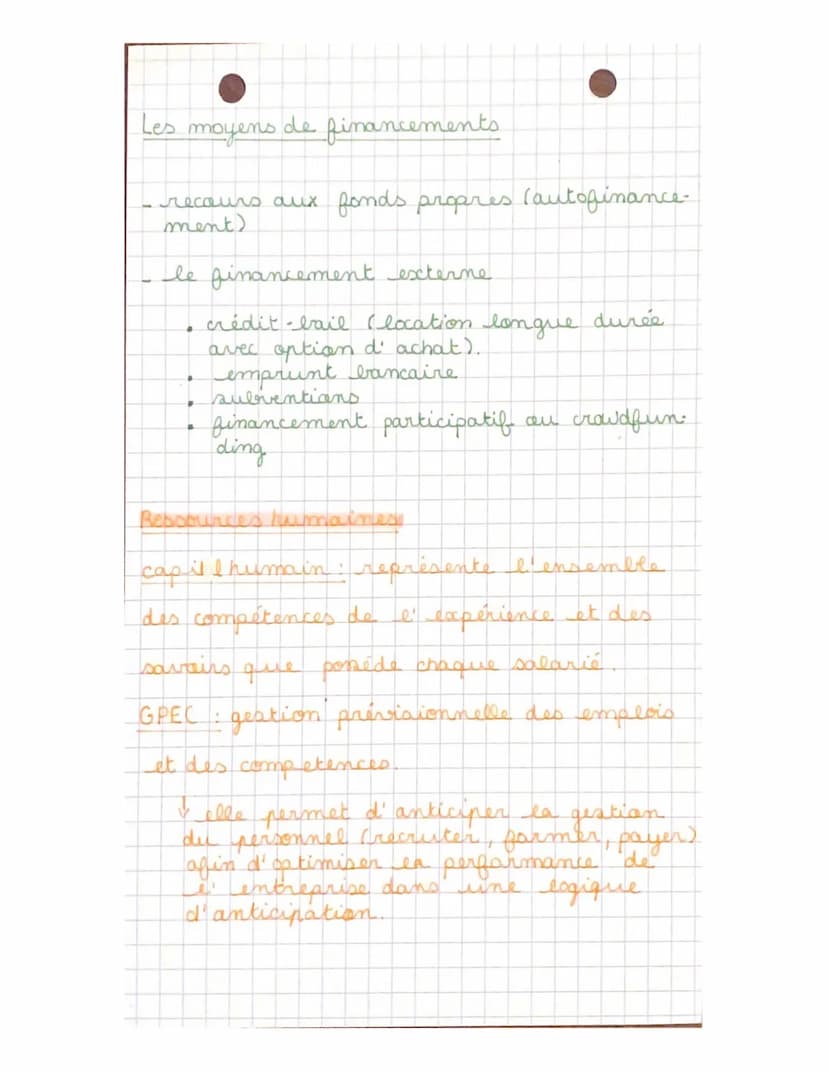 Les moyens de financements
- recours aux fonds propres (autofinance-
ment)
- le financement externe
• crédit-bail (location longue durée
avec option d'achat).
• emprunt bancaire
• subventions
• financement participatif ou crowdfun-
ding
Ressources humaines
capitl humain : représente l'ensemble
des compétences de l'expérience et des
savoirs que posséde chaque salarié.
GPEC : gestion prévisionnelle des emplois
et des competences.
↓ elle permet d'anticiper la gestion
du personnel (recruter, former, payer)
afin d'optimiser la performance de
l'entreprise dans une logique
d'anticipation.